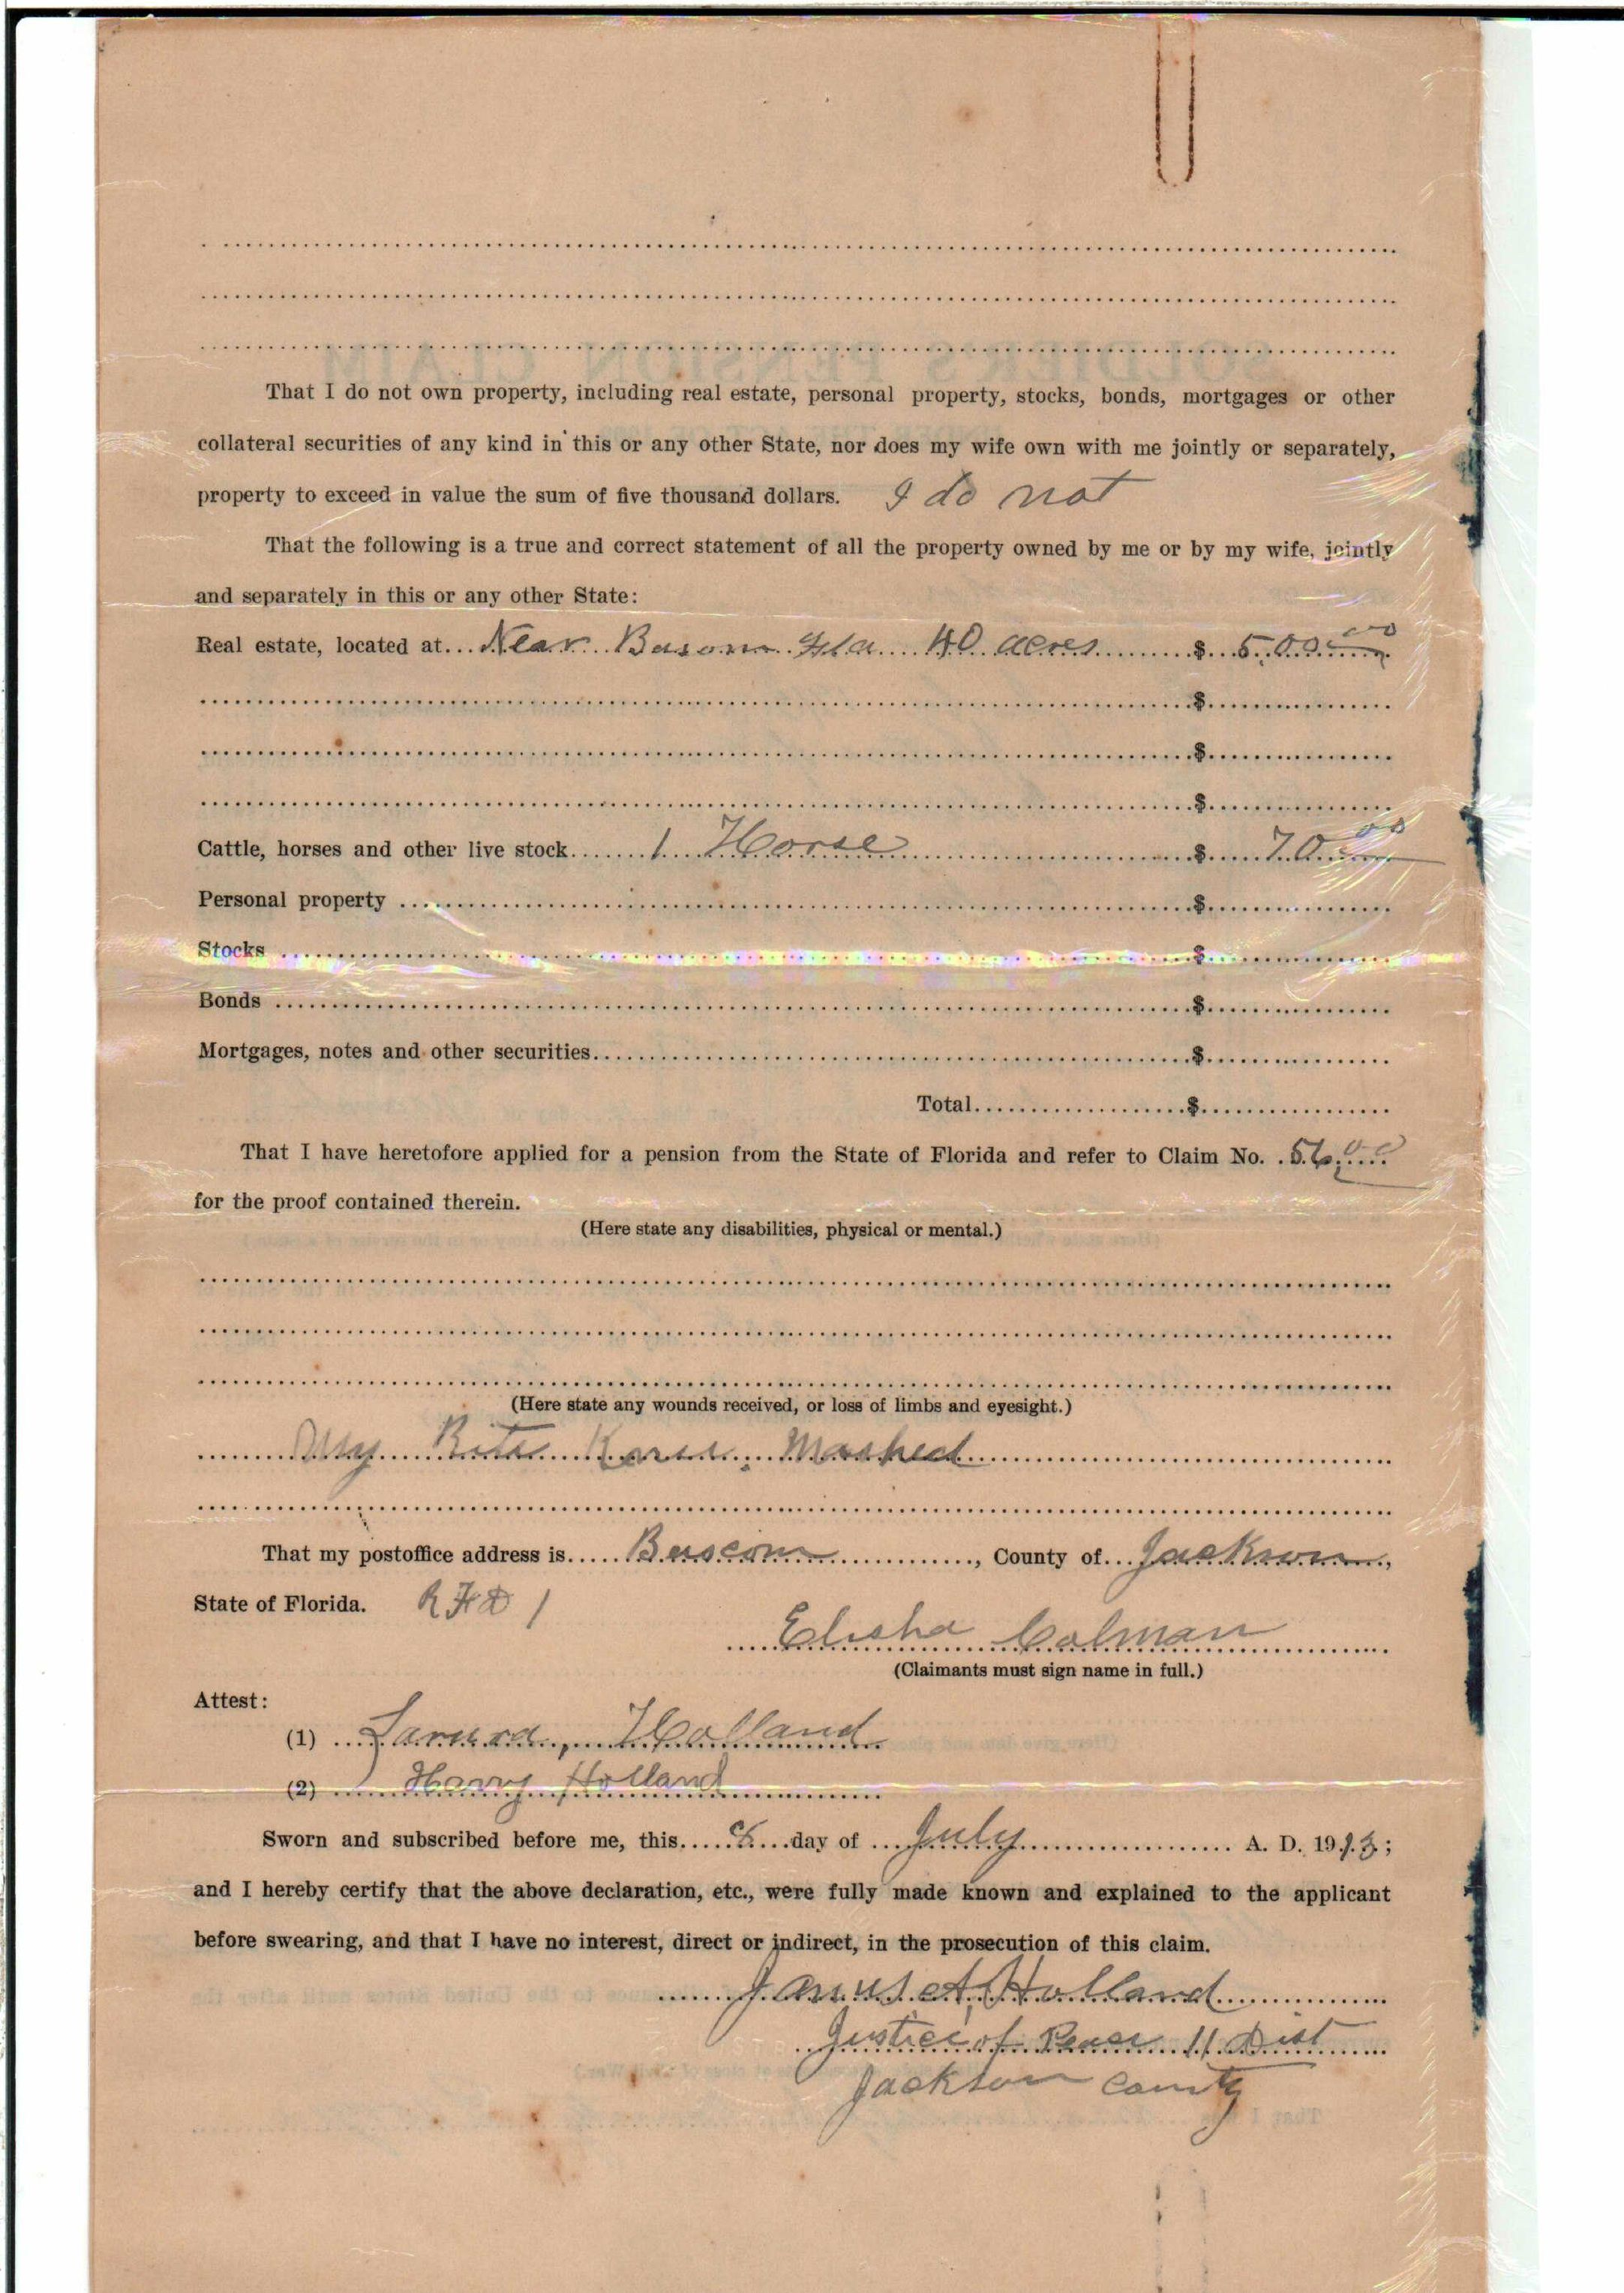 That I do not own property, including real estate, personal property, stocks, bonds, mortgages or other
collateral securities of any kind in this or any other State, nor does my wife own with me jointly or separately,
property to exceed in value the sum of five thousand dollars. I do not
That the following is a true and correct statement of all the property owned by me or by my wife, jointly
and separately in this or any other State:
Real estate, located at... Near Basom Fla 40 acres $ 500 00
$
$
$
Cattle, horses and other live stock 1 Horse $ 70 00
Personal property $
Stocks $
Bonds $
Mortgages, notes and other securities $
Total $
That I have heretofore applied for a pension from the State of Florida and refer to Claim No.
for the proof contained therein.
(Here state any disabilities, physical or mental.)
(Here state any wounds received, or loss of limbs and eyesight.)
My Mashed
That my postoffice address is Bascom, County of Jackson,
State of Florida. R F D 1
Elisha Colman
(Claimants must sign name in full.)
Attest:
(1) Holland
(2) Harry Holland
Sworn and subscribed before me, this day of July A. D. 1913;
and I hereby certify that the above declaration, etc., were fully made known and explained to the applicant
before swearing, and that I have no interest, direct or indirect, in the prosecution of this claim.
James A. Holland
Justice of Peace 11 Dist
Jackson County